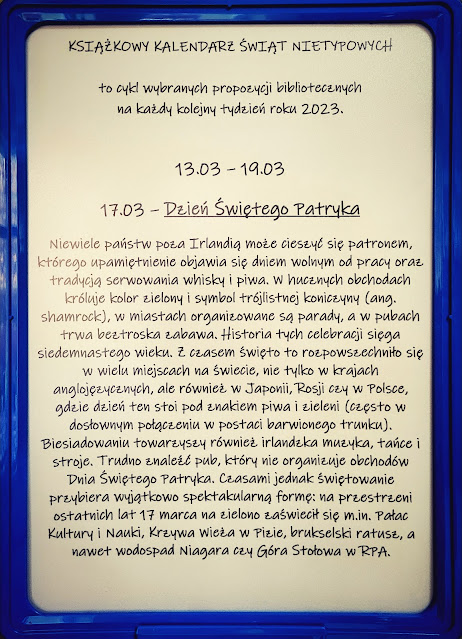 KSIĄŻKOWY KALENDARZ ŚWIĄT NIETYPOWYCH
to cykl wybranych propozycji bibliotecznych
na każdy kolejny tydzień roku 2023.
13.03 – 19.03
17.03 – Dzień Świętego Patryka
Niewiele państw poza Irlandią może cieszyć się patronem,
którego upamiętnienie objawia się dniem wolnym od pracy oraz
tradycją serwowania whisky i piwa. W hucznych obchodach
króluje kolor zielony i symbol trójlistnej koniczyny (ang.
shamrock), w miastach organizowane są parady, a w pubach
trwa beztroska zabawa. Historia tych celebracji sięga
siedemnastego wieku. Z czasem święto to rozpowszechniło się
w wielu miejscach na świecie, nie tylko w krajach
anglojęzycznych, ale również w Japonii, Rosji czy w Polsce,
gdzie dzień ten stoi pod znakiem piwa i zieleni (często w
dosłownym połączeniu w postaci barwionego trunku).
Biesiadowaniu towarzyszy również irlandzka muzyka, tańce i
stroje. Trudno znaleźć pub, który nie organizuje obchodów
Dnia Świętego Patryka. Czasami jednak świętowanie
przybiera wyjątkowo spektakularną formę: na przestrzeni
ostatnich lat 17 marca na zielono zaświecił się m.in. Pałac
Kultury i Nauki, Krzywa Wieża w Pizie, brukselski ratusz, a
nawet wodospad Niagara czy Góra Stołowa w RPA.